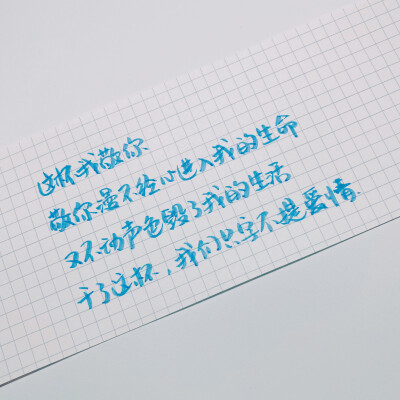 这杯我敬你
敬你漫不经心进入我的生命
又不动声色毁了我的生活
干了这杯，我们只字不提爱情.